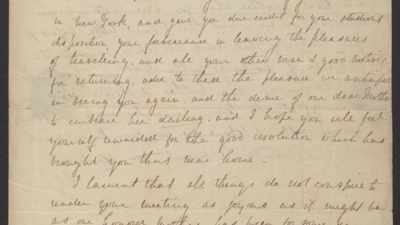 in New York, and gave you due credit for your studious
disposition your forbearance in leaving the pleasures
of travelling, and all your other wise & good motives
for returning, add to these the pleasure we anticipate
in seeing you again, and the desire of our dear Mother
to embrace her darling, and I hope you will feel
yourself rewarded for the good resolution which has
brought you thus near home –
I lament that all things do not conspire to
render your meeting as joyous as it might be
as our honour mother has been for some